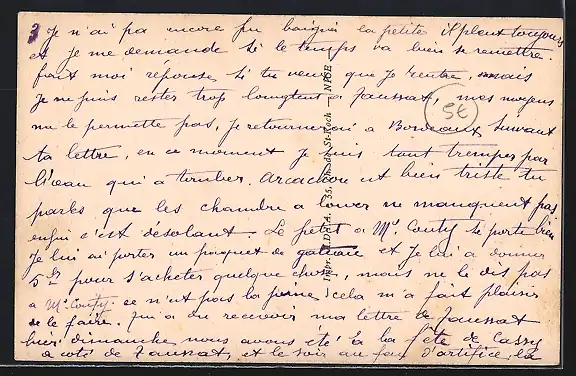 3 Je n'ai pa encore pu baigner la petite il pleut toujours
et je me demande si le temps va bien se remettre.
fait moi réponse si tu veux que je rentre, mais
je ne puis rester trop longtent a Taussat, mes moyens
me le permette pas, je retournerai a Bordeaux suivant
ta lettre, en ce moment je suis tout tremper par
l'eau qui a tomber. Arcachon est bien triste tu
parles que les chambre a louer ne manquent pas
enfin c'est désolant. Le petit a Me Couty se porte bien
je lui ai porter un paquet de gateau et je lui a donner
5 pour s'acheter quelque chose, mais ne le dis pas
a Me Couty ce n'est pas la peine cela m'a fait plaisir
de le faire. Tu a du recevoir ma lettre de Taussat
hier dimanche nous avons été a la fête de Cassy
a coté de Taussat, et le soir au feu d'artifice, la
5€
Imp. 35, St-Roch - NICE